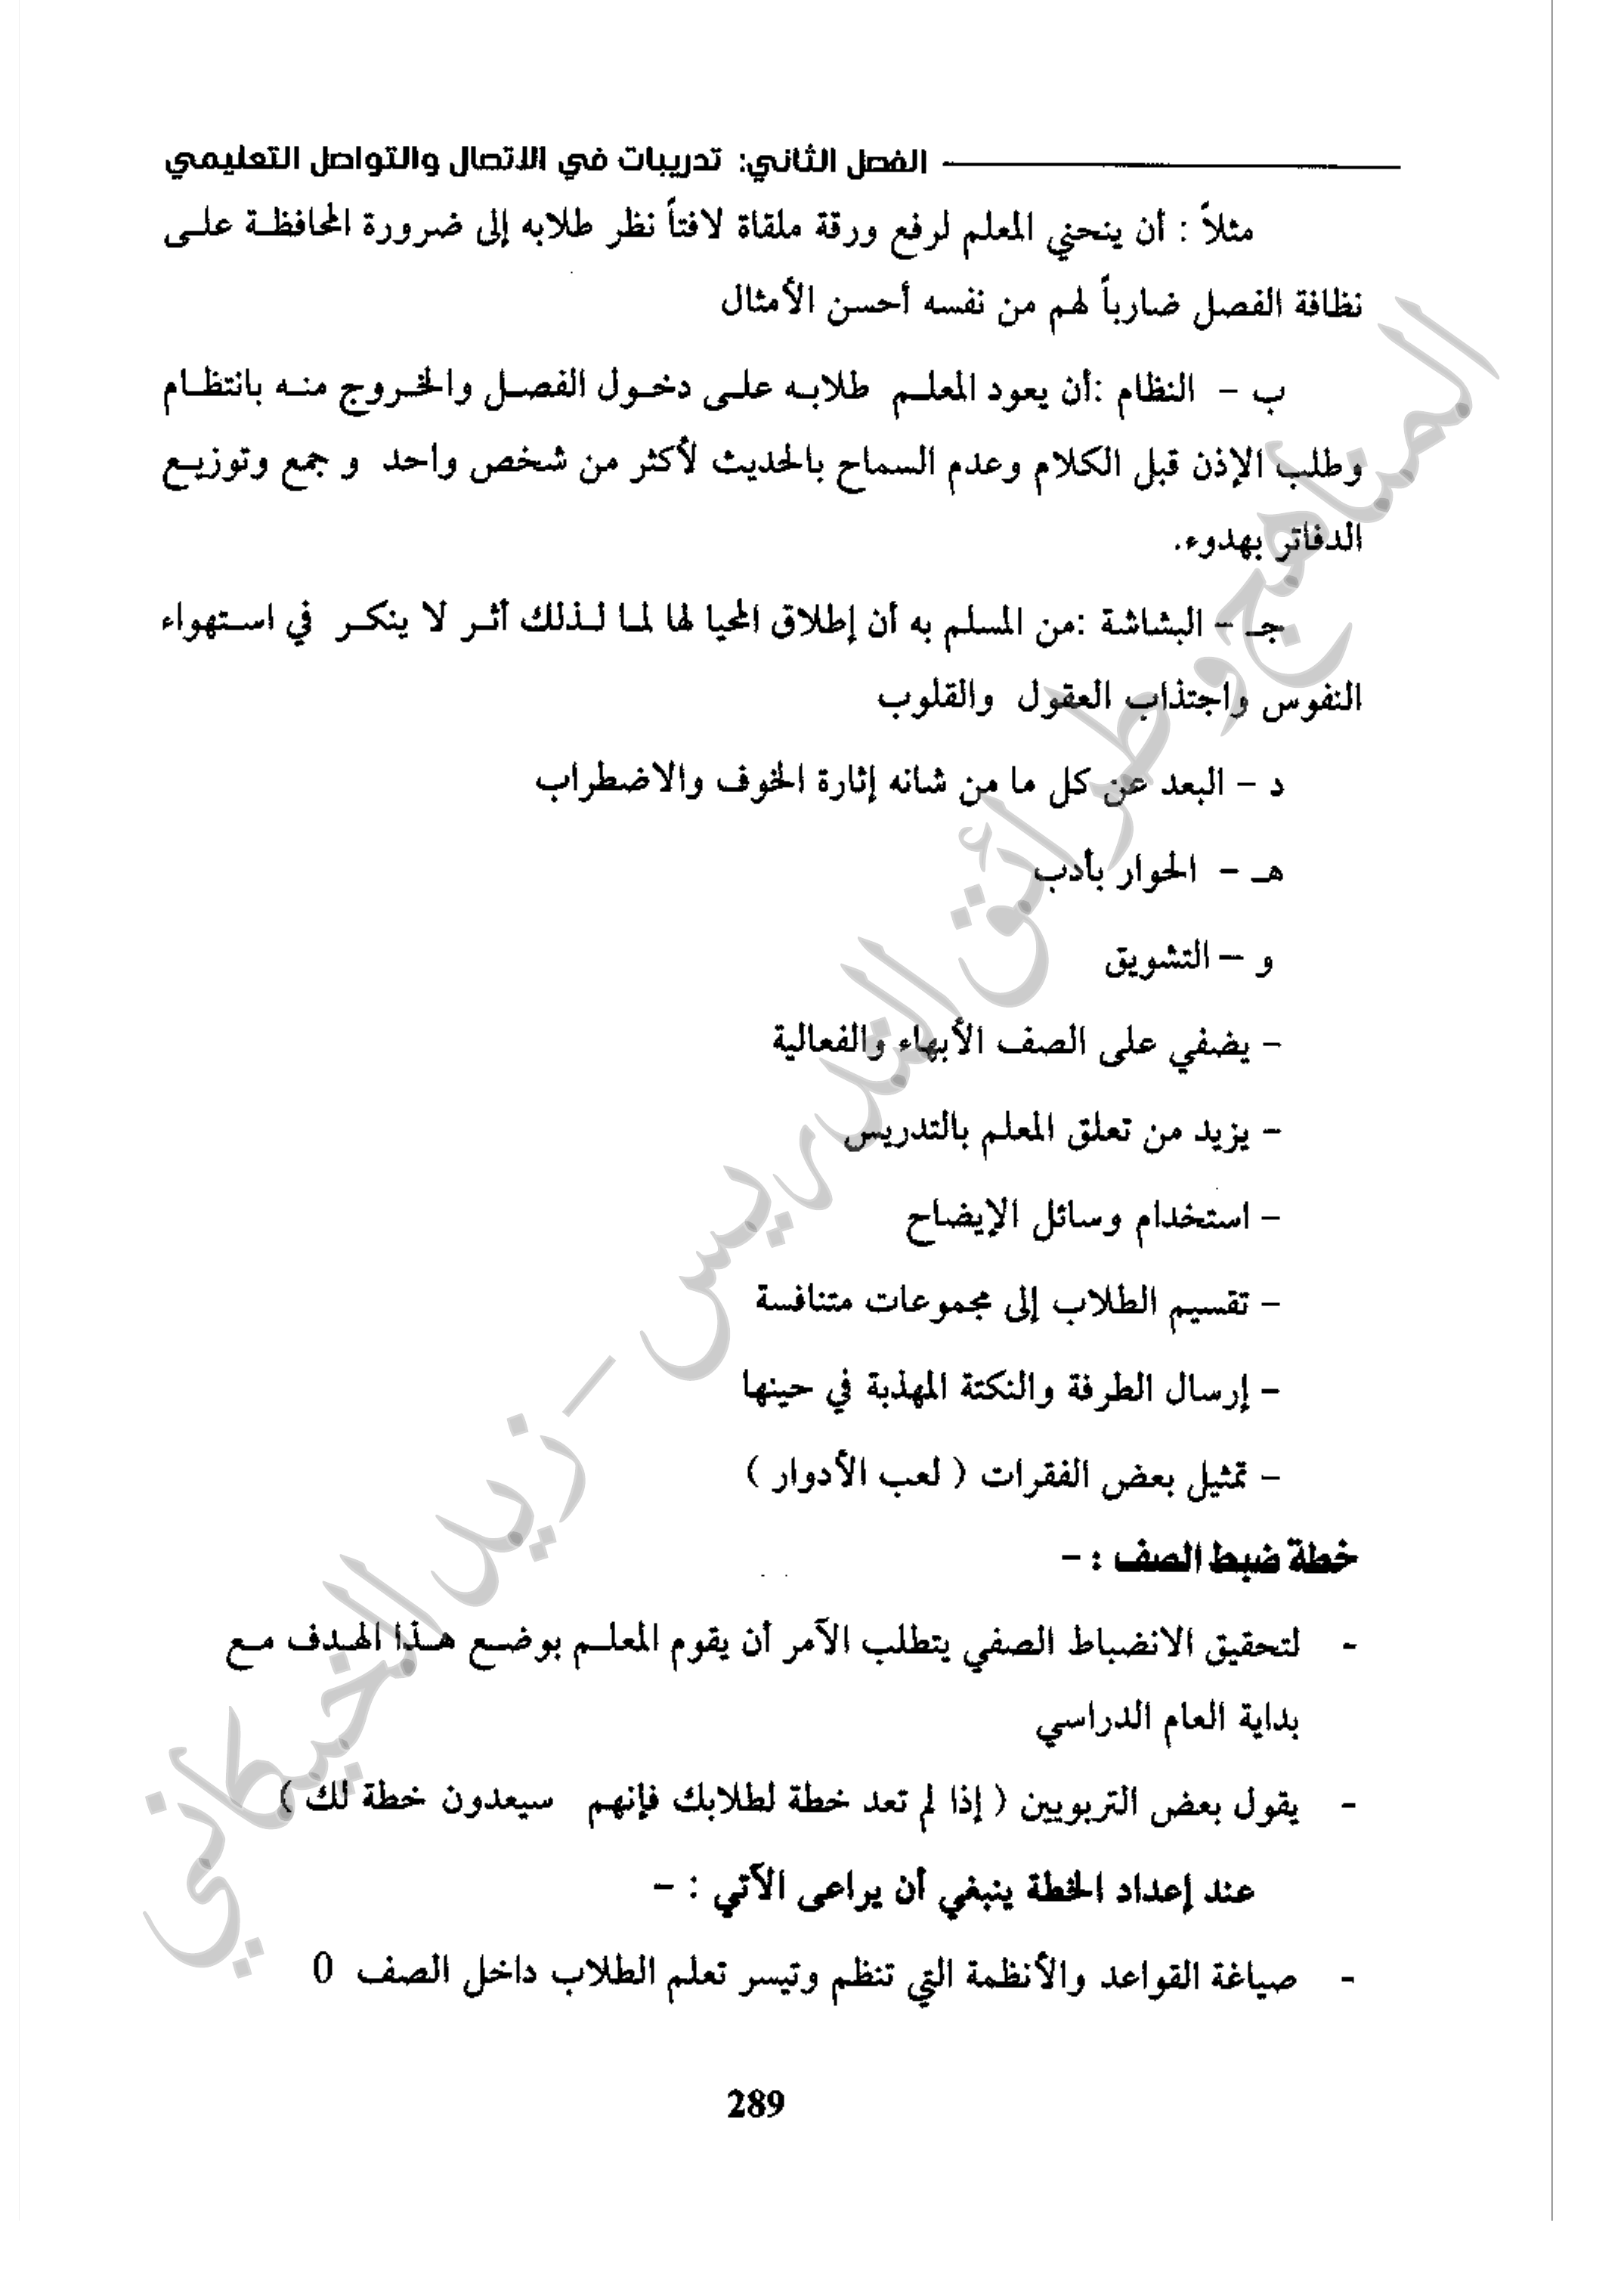 الفصل الثاني: تدريبات في الاتصال والتواصل التعليمي
مثلاً : أن ينحني المعلم لرفع ورقة ملقاة لافتاً نظر طلابه إلى ضرورة المحافظة على
نظافة الفصل ضارباً لهم من نفسه أحسن الأمثال
ب – النظام :أن يعود المعلم طلابه على دخول الفصل والخروج منه بانتظام
وطلب الإذن قبل الكلام وعدم السماح بالحديث لأكثر من شخص واحد و جمع وتوزيع
الدفاتر بهدوء.
جـ – البشاشة :من المسلم به أن إطلاق المحيا لها لما لذلك أثر لا ينكر في استهواء
النفوس واجتذاب العقول والقلوب
د – البعد عن كل ما من شانه إثارة الخوف والاضطراب
هـ – الحوار بأدب
و – التشويق
– يضفي على الصف الأبهاء والفعالية
– يزيد من تعلق المعلم بالتدريس
– استخدام وسائل الإيضاح
– تقسيم الطلاب إلى مجموعات متنافسة
– إرسال الطرفة والنكتة المهذبة في حينها
– تمثيل بعض الفقرات ( لعب الأدوار )
خطة ضبط الصف : –
- لتحقيق الانضباط الصفي يتطلب الآمر أن يقوم المعلم بوضع هذا الهدف مع
بداية العام الدراسي
- يقول بعض التربويين ( إذا لم تعد خطة لطلابك فإنهم سيعدون خطة لك )
عند إعداد الخطة ينبغي أن يراعى الآتي : –
- صياغة القواعد والأنظمة التي تنظم وتيسر تعلم الطلاب داخل الصف 0
289
المناهج وطرائق التدريس – زيد الخيكاني